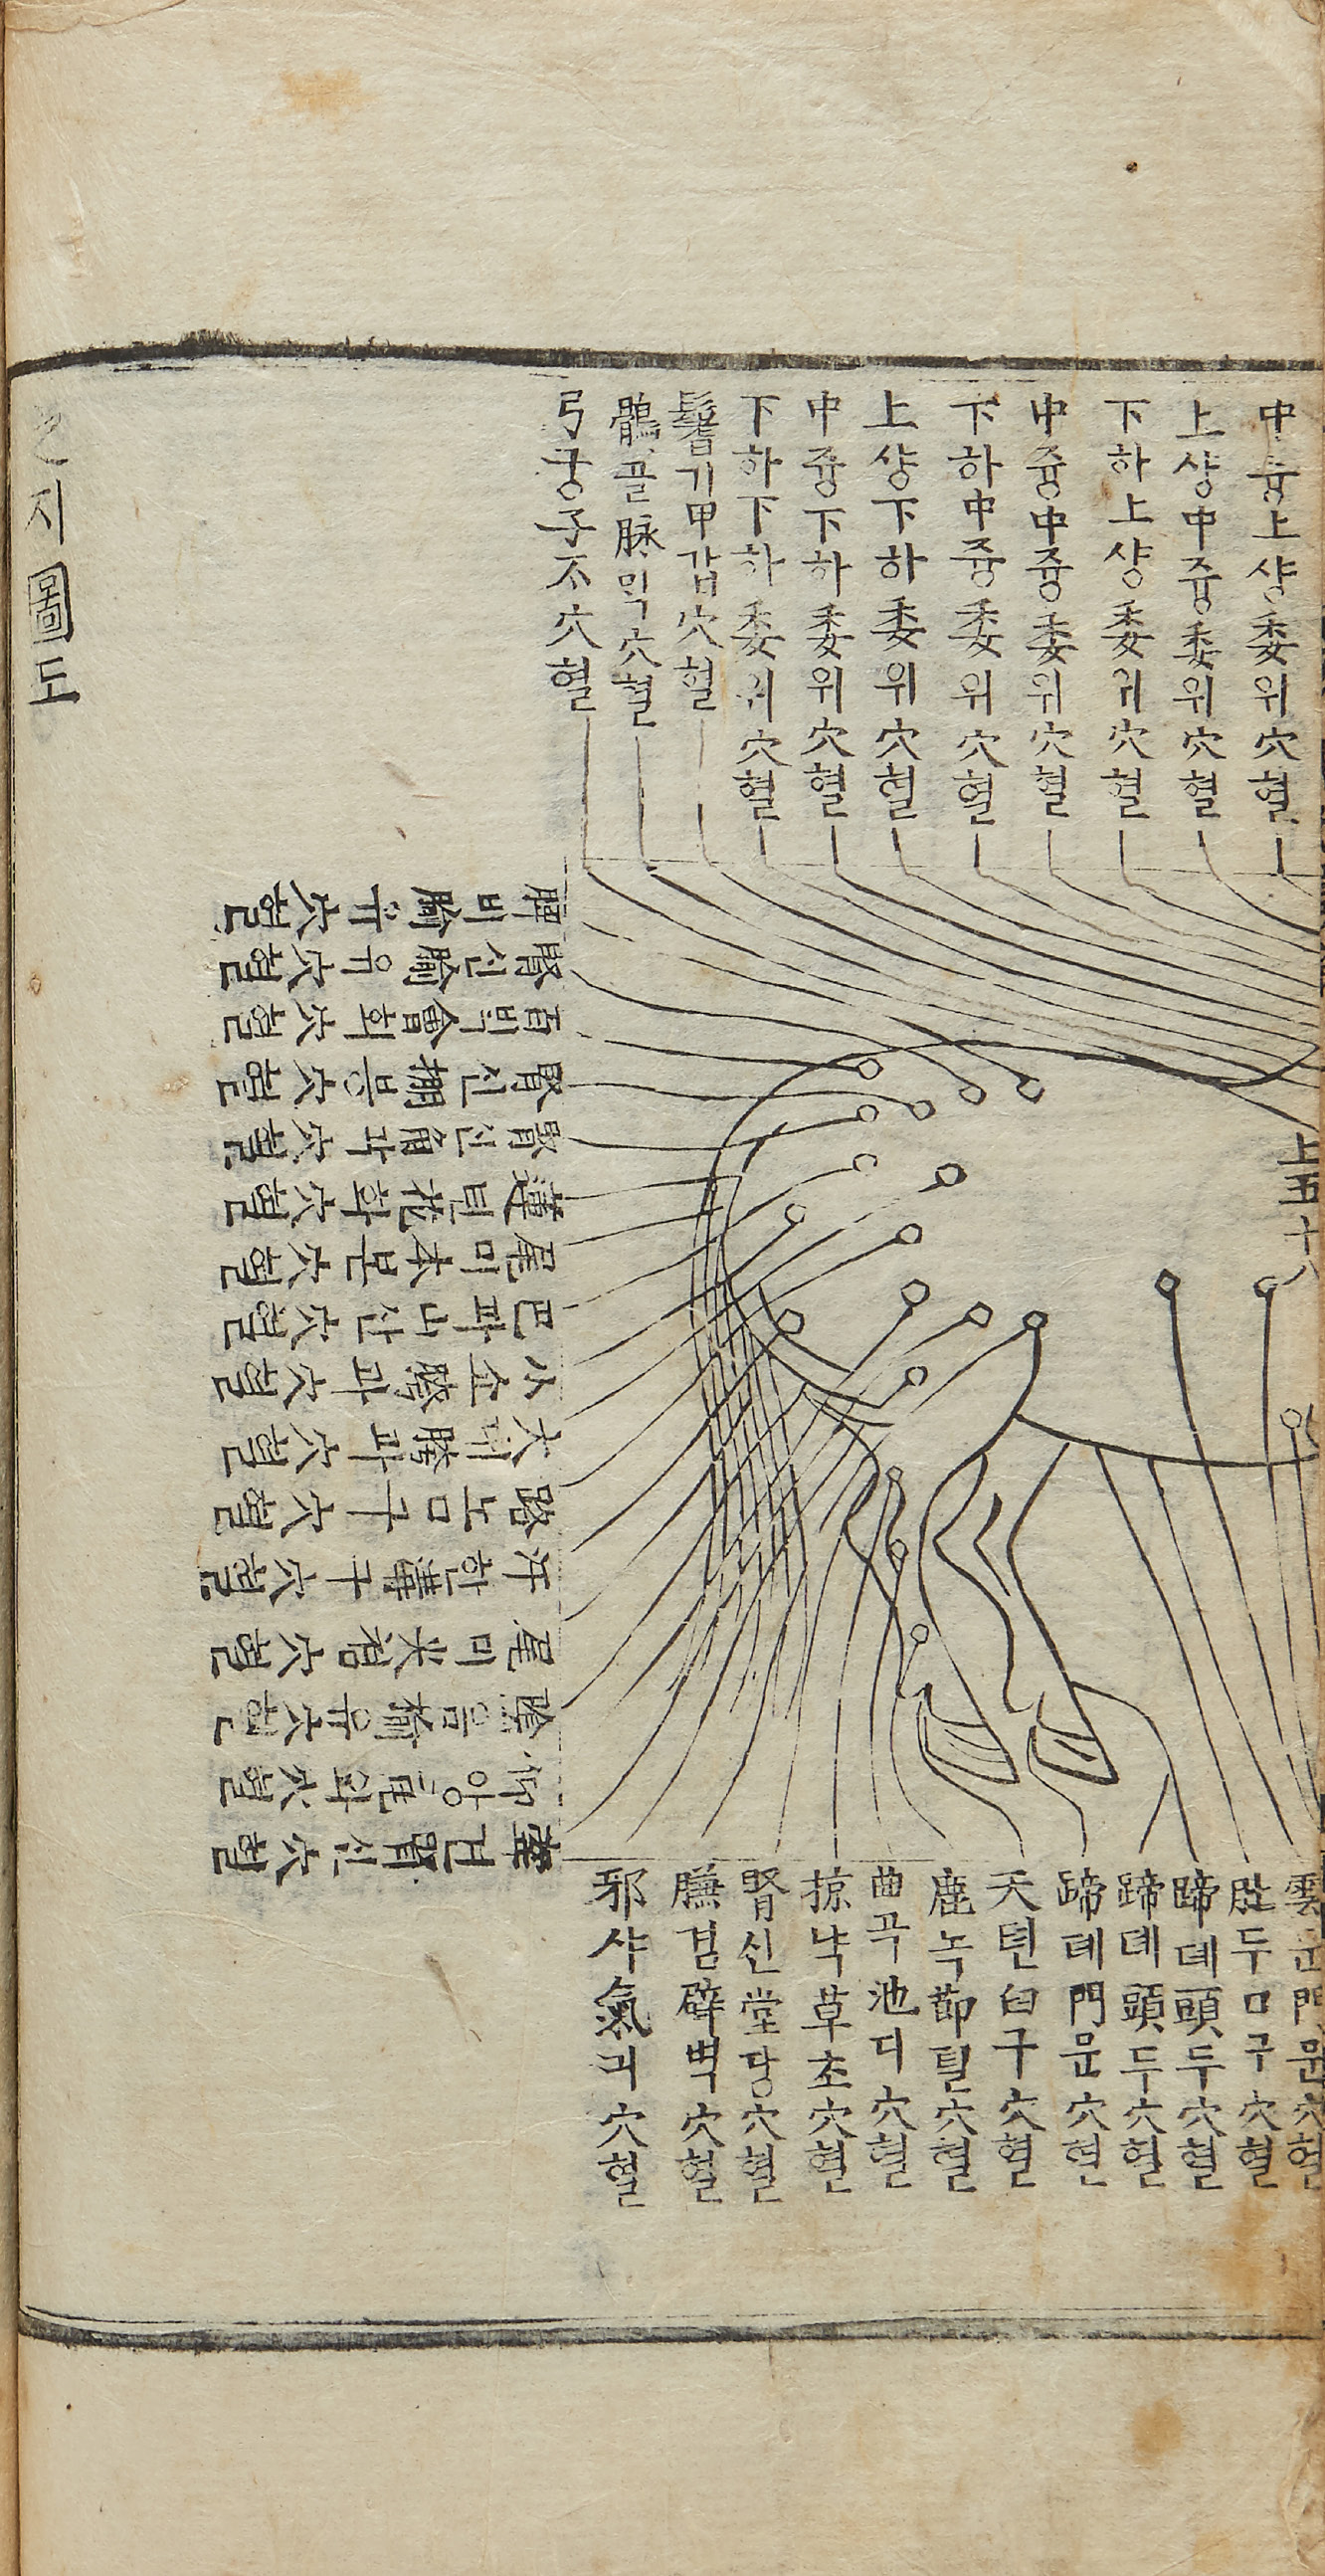 中즁上샹委위穴혈
上샹中즁委위穴혈
下하上샹委위穴혈
中즁中즁委위穴혈
下하中즁委위穴혈
上샹下하委위穴혈
中즁下하委위穴혈
下하下하委위穴혈
鬐기甲갑穴혈
鶻골脉믹穴혈
弓궁子ᄌᆞ穴혈
지圖도
脾비腧유穴혈
腎신腧유穴혈
百ᄇᆡᆨ會회穴혈
腎신棚붕穴혈
腎신角각穴혈
蓮련花화穴혈
尾미本본穴혈
巴파山산穴혈
小쇼胯과穴혈
大대胯과穴혈
路노口구穴혈
汗한溝구穴혈
尾미尖쳠穴혈
陰음腧유穴혈
仰앙瓦와穴혈
腎신穴혈
上五十八
雲운門문穴혈
肚두口구穴혈
蹄뎨頭두穴혈
蹄뎨頭두穴혈
蹄뎨門문穴혈
天텬臼구穴혈
鹿녹節졀穴혈
曲곡池디穴혈
掠냑草초穴혈
腎신堂당穴혈
膁겸穴혈
邪샤氣긔穴혈